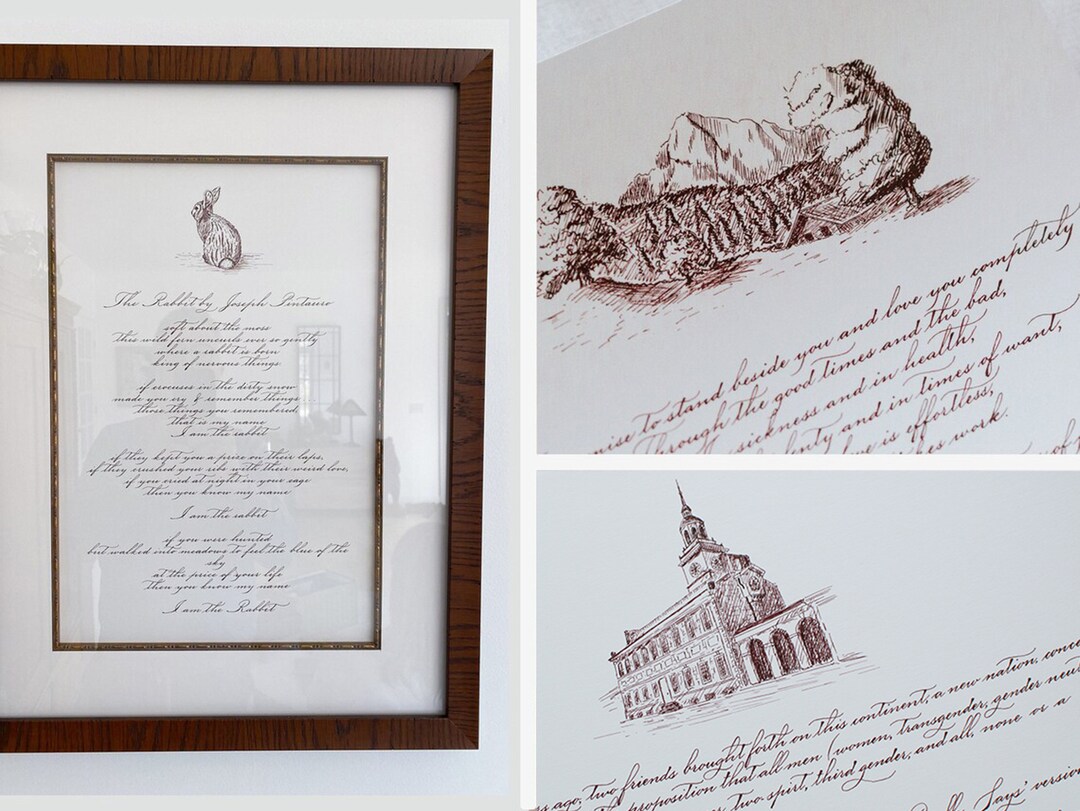 The Rabbit by Joseph Pintauro
soft about the moss
this wild fern uncurls ever so gently
where a rabbit is born
king of nervous things
if crocuses in the dirty snow
made you cry & remember things...
those things you remembered
that is my name
I am the rabbit
if they kept you a price on their laps,
if they crushed your ribs with their weird love,
if you cried at night in your cage
then you know my name
I am the rabbit
if you were hunted
but walked into meadows to feel the blue of the
sky
at the price of your life
then you know my name
I am the Rabbit
to stand beside you and love you completely
Through the good times and the bad,
sickness and in health,
and in times of want,
is effortless,
work.
ago, two friends brought forth on this continent, a new nation,
proposition that all men (women, transgender, gender
two spirit, third gender, and all, none or a